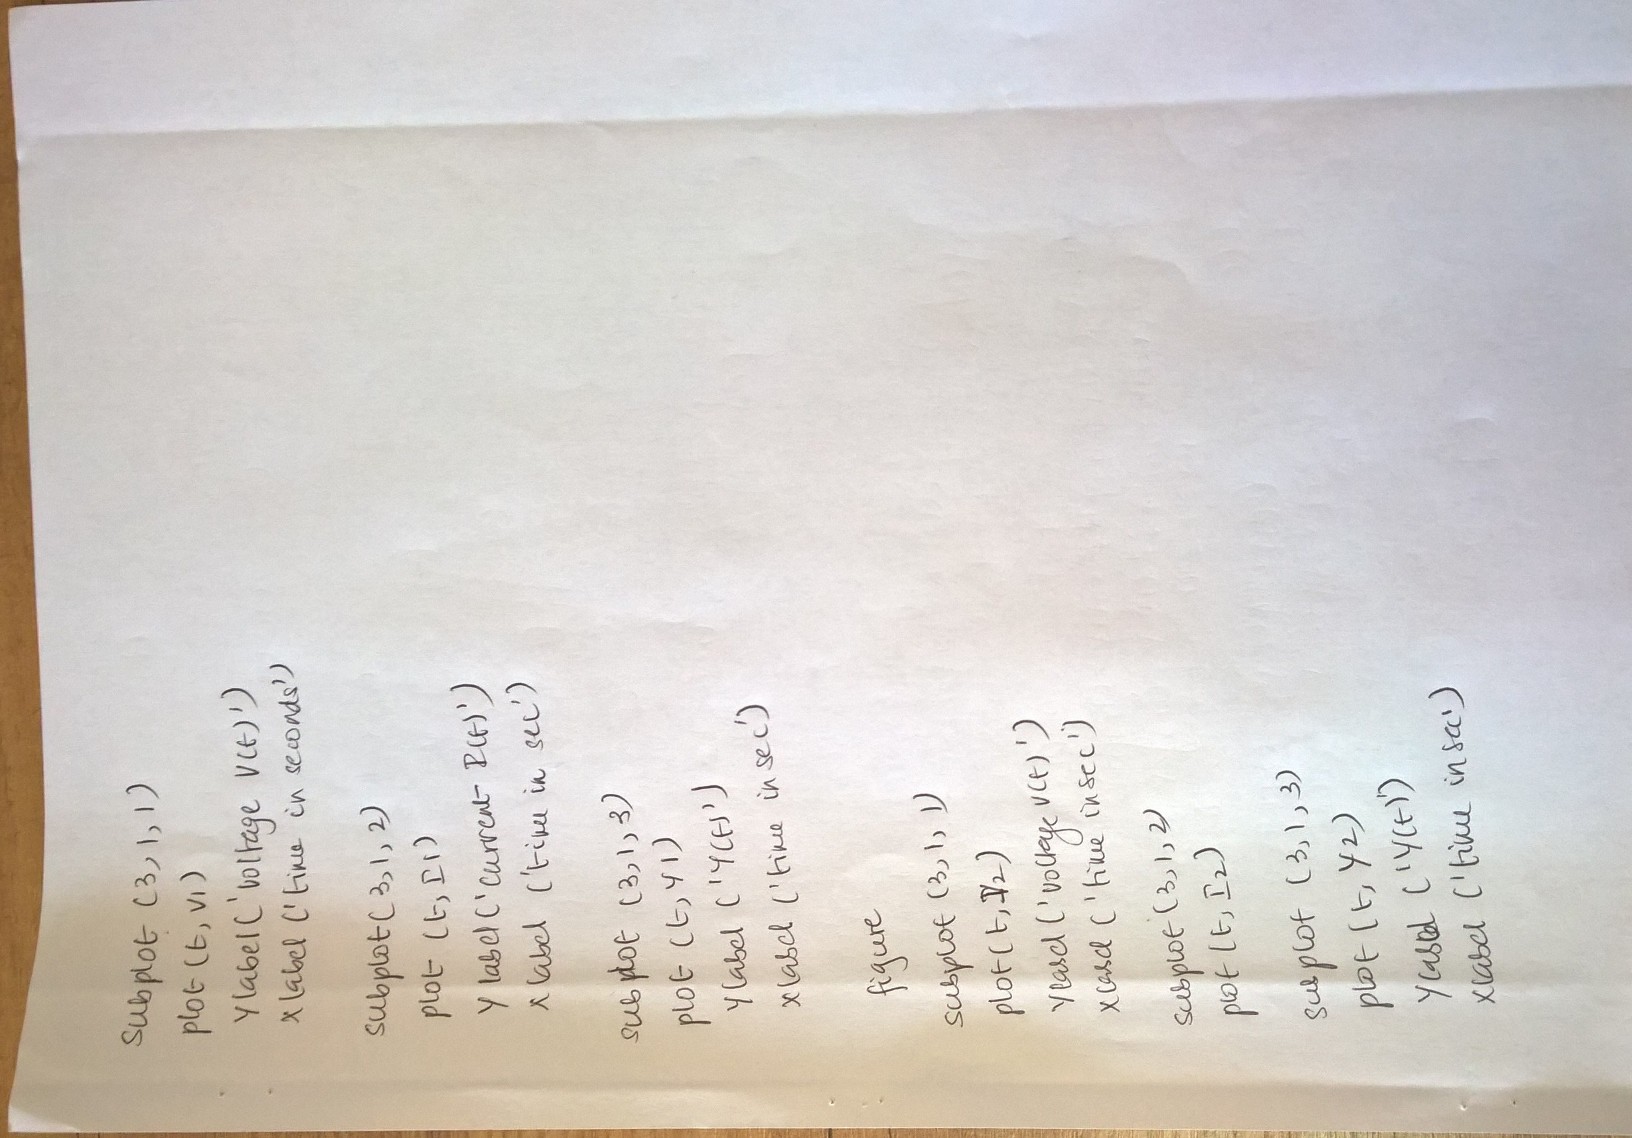 subplot (3,1,1)
plot (t, V1)
ylabel('voltage V(t)')
xlabel ('time in seconds')
subplot (3,1,2)
plot (t, I1)
ylabel ('current I(t)')
xlabel ('time in sec')
subplot (3,1,3)
plot (t, Y1)
ylabel ('Y(t)')
xlabel ('time in sec')
figure
subplot (3,1,1)
plot(t, V2)
ylabel ('voltage V(t)')
xlabel ('time in sec')
subplot (3,1,2)
plot (t, I2)
subplot (3,1,3)
plot (t, Y2)
ylabel ('Y(t)')
xlabel ('time in sec')